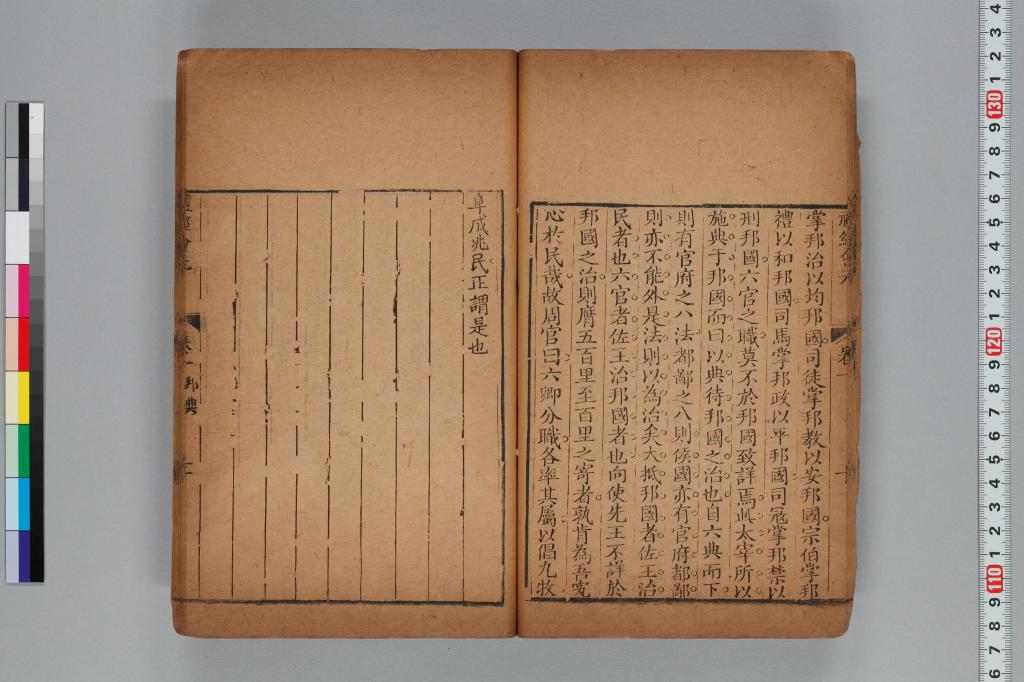 掌邦治以均邦國司徒掌邦教以安邦國宗伯掌邦
禮以和邦國司馬掌邦政以平邦國司冦掌邦禁以
刑邦國六官之職莫不於邦國致詳焉此太宰所以
施典于邦國而曰以典待邦國之治也自六典而下
則有官府之八法都鄙之八則侯國亦有官府都鄙
則亦不能外是法則以為治矣大抵邦國者佐王治
民者也六官者佐王治邦國者也向使先王不詳於
邦國之治則膺五百里至百里之寄者孰肯為吾究
心於民哉故周官曰六卿分職各率其屬以倡九牧
阜成兆民正謂是也
禮經會元
卷一 邦典